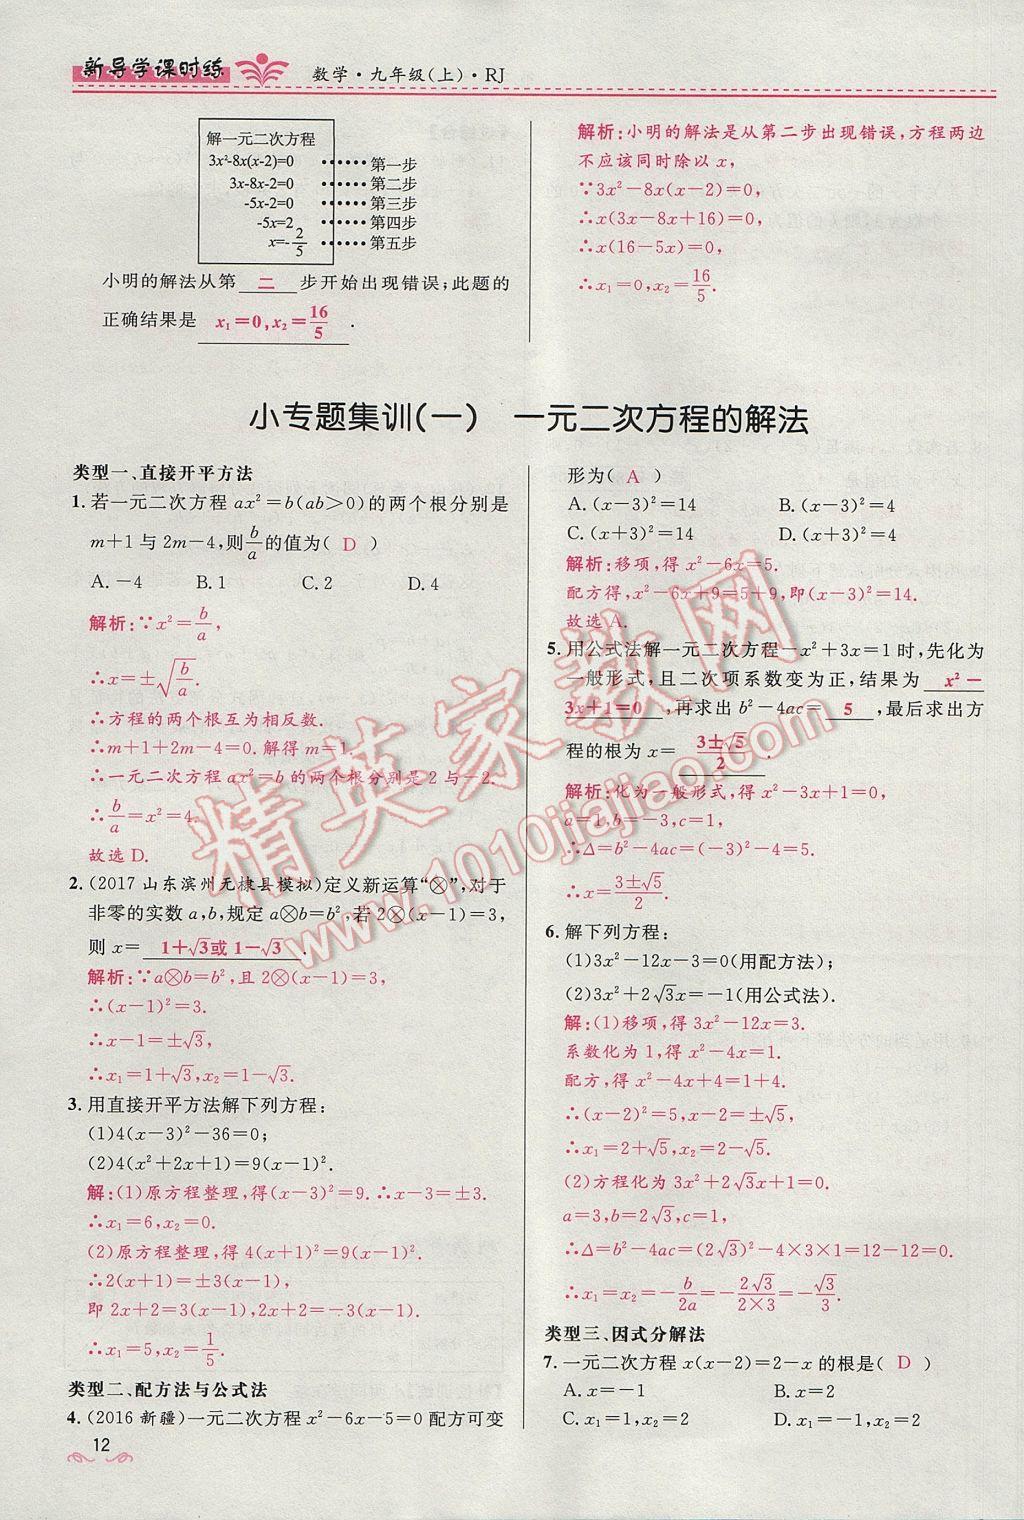 新导学课时练
数学·九年级(上)·RJ
解一元二次方程
3x²-8x(x-2)=0 ……第一步
3x-8x-2=0 ……第二步
-5x-2=0 ……第三步
-5x=2 ……第四步
x=-2/5 ……第五步
小明的解法从第 二 步开始出现错误;此题的
正确结果是 x₁=0,x₂=16/5 .
解析:小明的解法是从第二步出现错误,方程两边
不应该同时除以 x,
∵3x²-8x(x-2)=0,
∴x(3x-8x+16)=0,
∴x(16-5x)=0,
∴x₁=0,x₂=16/5.
小专题集训(一) 一元二次方程的解法
类型一、直接开平方法
1. 若一元二次方程 ax²=b(ab>0)的两个根分别是
m+1 与 2m-4,则b/a的值为( D )
A. -4 B. 1 C. 2 D. 4
解析:∵x²=b/a,
∴x=±√(b/a).
∴方程的两个根互为相反数.
∴m+1+2m-4=0. 解得 m=1.
∴一元二次方程 ax²=b 的两个根分别是 2 与-2.
∴b/a=x²=4.
故选 D.
2. (2017 山东滨州无棣县模拟)定义新运算“⊗”,对于
非零的实数 a,b,规定 a⊗b=b²,若 2⊗(x-1)=3,
则 x= 1+√3或 1-√3 .
解析:∵a⊗b=b²,且 2⊗(x-1)=3,
∴(x-1)²=3.
∴x-1=±√3,
∴x₁=1+√3,x₂=1-√3.
3. 用直接开平方法解下列方程:
(1)4(x-3)²-36=0;
(2)4(x²+2x+1)=9(x-1)².
解:(1)原方程整理,得(x-3)²=9. ∴x-3=±3.
∴x₁=6,x₂=0.
(2)原方程整理,得 4(x+1)²=9(x-1)².
∴2(x+1)=±3(x-1),
即 2x+2=3(x-1),2x+2=-3(x-1).
∴x₁=5,x₂=1/5.
类型二、配方法与公式法
4. (2016 新疆)一元二次方程 x²-6x-5=0 配方可变
形为( A )
A. (x-3)²=14 B. (x-3)²=4
C. (x+3)²=14 D. (x+3)²=4
解析:移项,得 x²-6x=5.
配方得,x²-6x+9=5+9,即(x-3)²=14.
故选 A.
5. 用公式法解一元二次方程-x²+3x=1 时,先化为
一般形式,且二次项系数变为正,结果为 x²-
3x+1=0 ,再求出 b²-4ac= 5 ,最后求出方
程的根为 x= (3±√5)/2 .
解析:化为一般形式,得 x²-3x+1=0,
a=1,b=-3,c=1,
∴Δ=b²-4ac=(-3)²-4=5
∴x=(3±√5)/2.
6. 解下列方程:
(1)3x²-12x-3=0(用配方法);
(2)3x²+2√3x=-1(用公式法).
解:(1)移项,得 3x²-12x=3.
系数化为 1,得 x²-4x=1.
配方,得 x²-4x+4=1+4.
∴(x-2)²=5,x-2=±√5.
∴x₁=2+√5,x₂=2-√5.
(2)方程化为 3x²+2√3x+1=0.
a=3,b=2√3,c=1,
∴Δ=b²-4ac=(2√3)²-4×3×1=12-12=0.
∴x₁=x₂=-b/2a=-2√3/(2×3)=-√3/3.
类型三、因式分解法
7. 一元二次方程 x(x-2)=2-x 的根是( D )
A. x=-1 B. x=2
C. x₁=1,x₂=2 D. x₁=-1,x₂=2
12
精英家教网
www.1010jiajiao.com